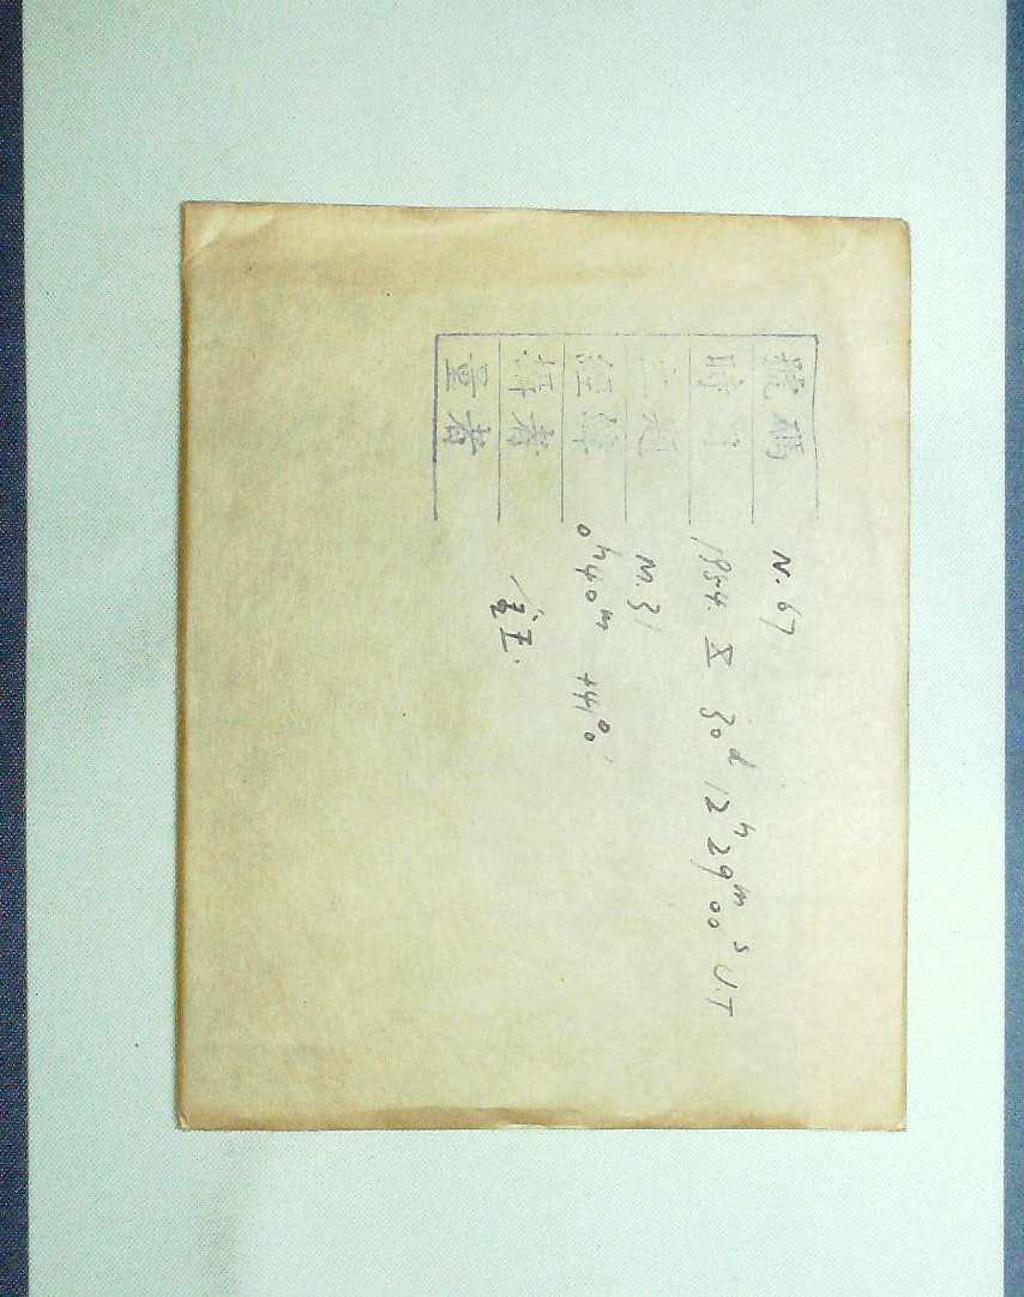 號碼 N. 67
時間 1954. X 30d 12h 29m 00s U.T
M. 31
經緯 0h 40m +41° 0'
者
量者